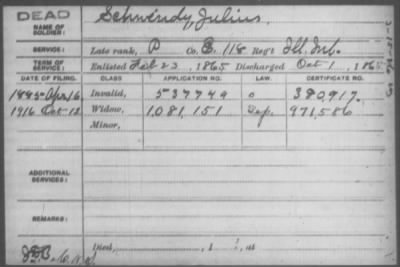 DEAD
NAME OF SOLDIER: Schwindy, Julius.
SERVICE: Late rank, P Co. B, 118 Reg't Ill. Inf.
TERM OF SERVICE: Enlisted Feb 23, 1865 Discharged Oct 1, 1865
DATE OF FILING. CLASS APPLICATION NO. LAW. CERTIFICATE NO.
1885-Apr 16 Invalid, 537749 380917.
1916 Oct 12 Widow, 1,081,151 Dep. 971,586
Minor,
ADDITIONAL SERVICES:
REMARKS:
Died, , 1 , at